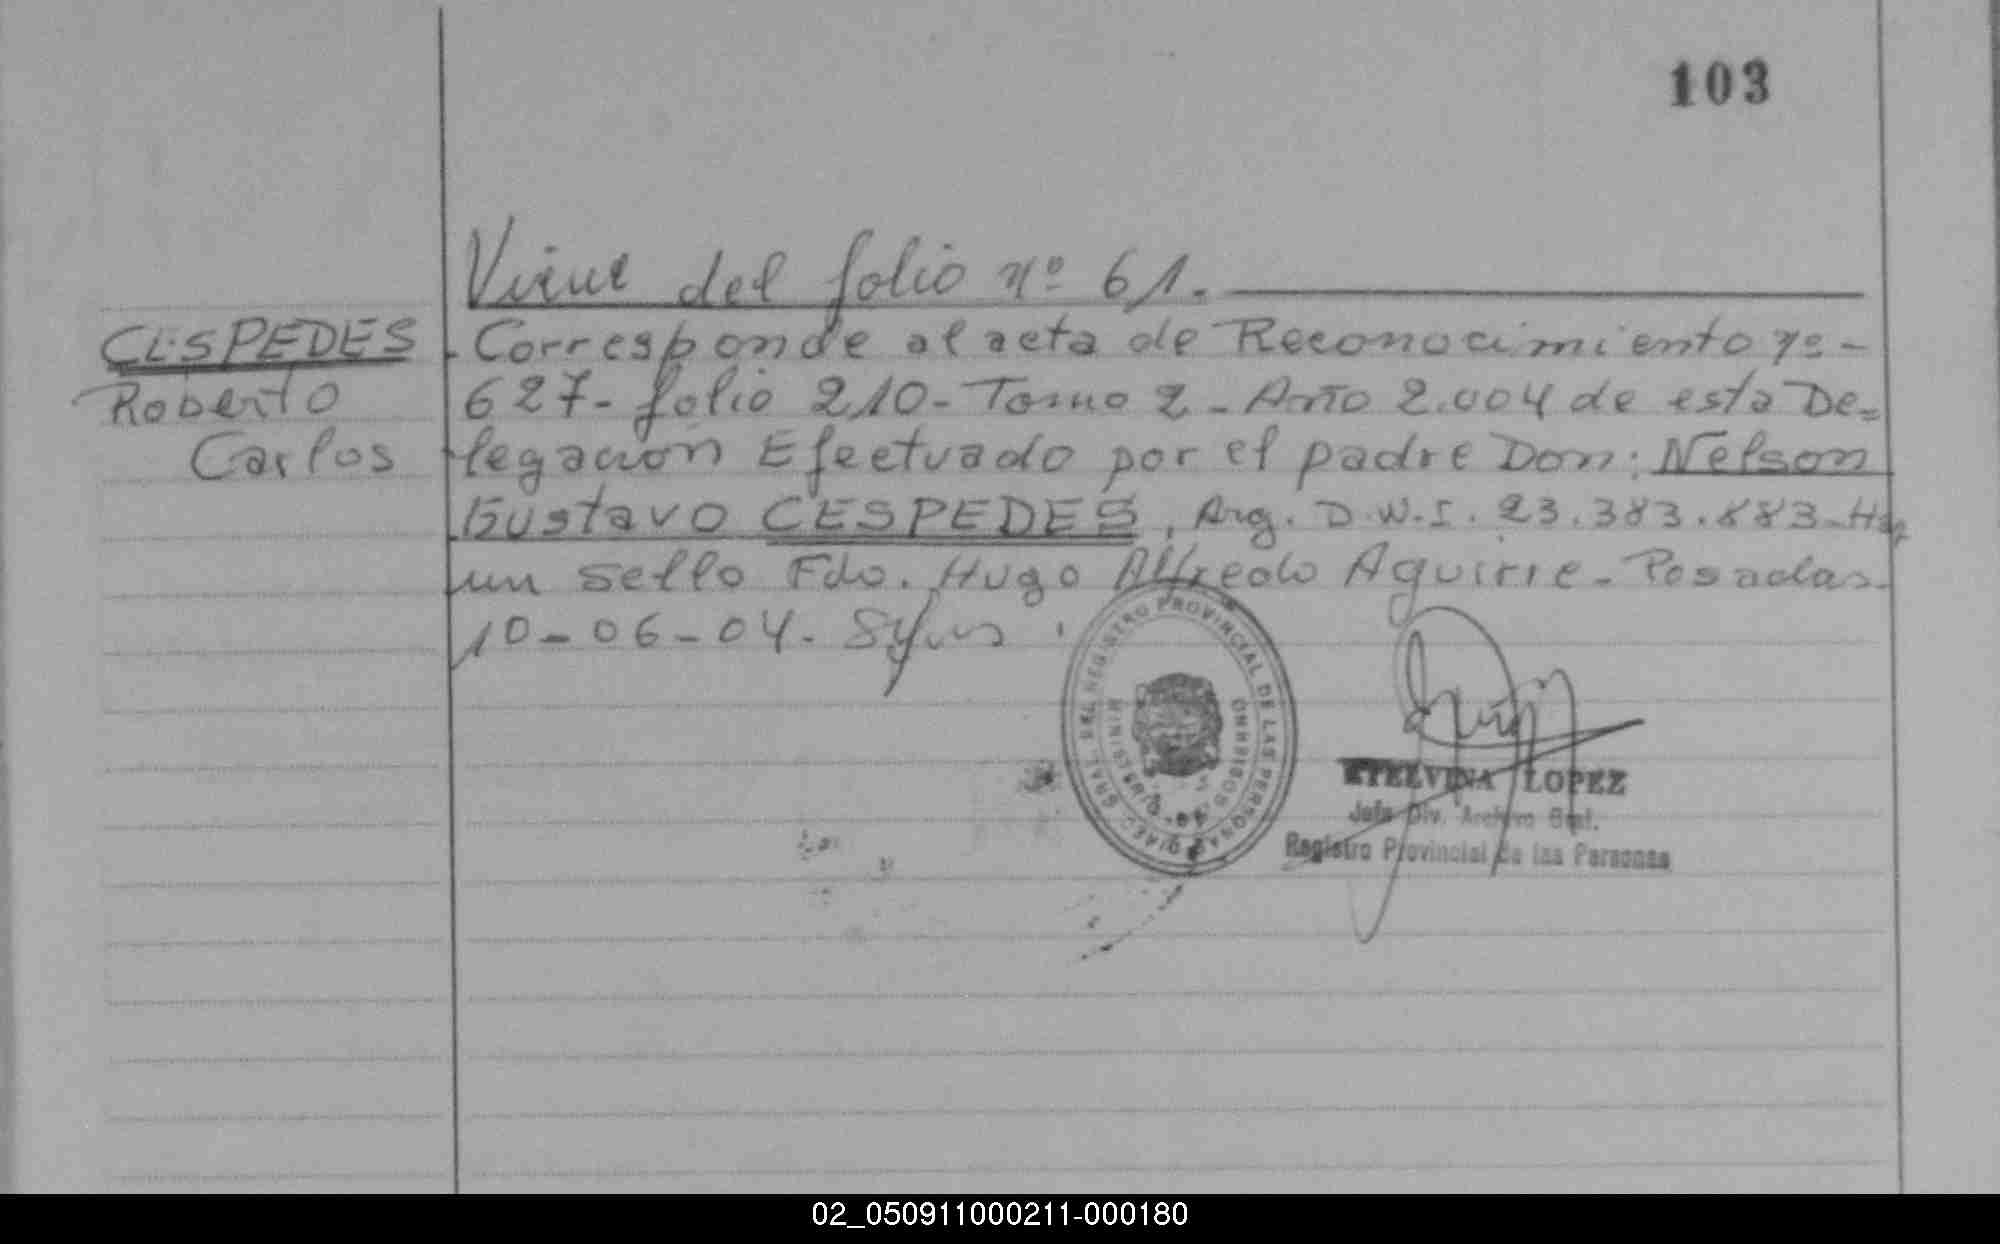 103
Viene del folio nº 61.
CESPEDES
Roberto
Carlos
Corresponde al acta de Reconocimiento nº-
627- folio 210- Tomo 2 - Año 2.004 de esta De=
legación Efectuado por el padre Don: Nelson
Gustavo CESPEDES, Arg. D.N.I. 23.383.883- Hay
un sello Fdo. Hugo Alfredo Aguirre - Posadas
10-06-04.
REGISTRO PROVINCIAL DE LAS PERSONAS
ETELVINA LOPEZ
Jefa Div. Archivo Gral.
Registro Provincial de las Personas
02_050911000211-000180